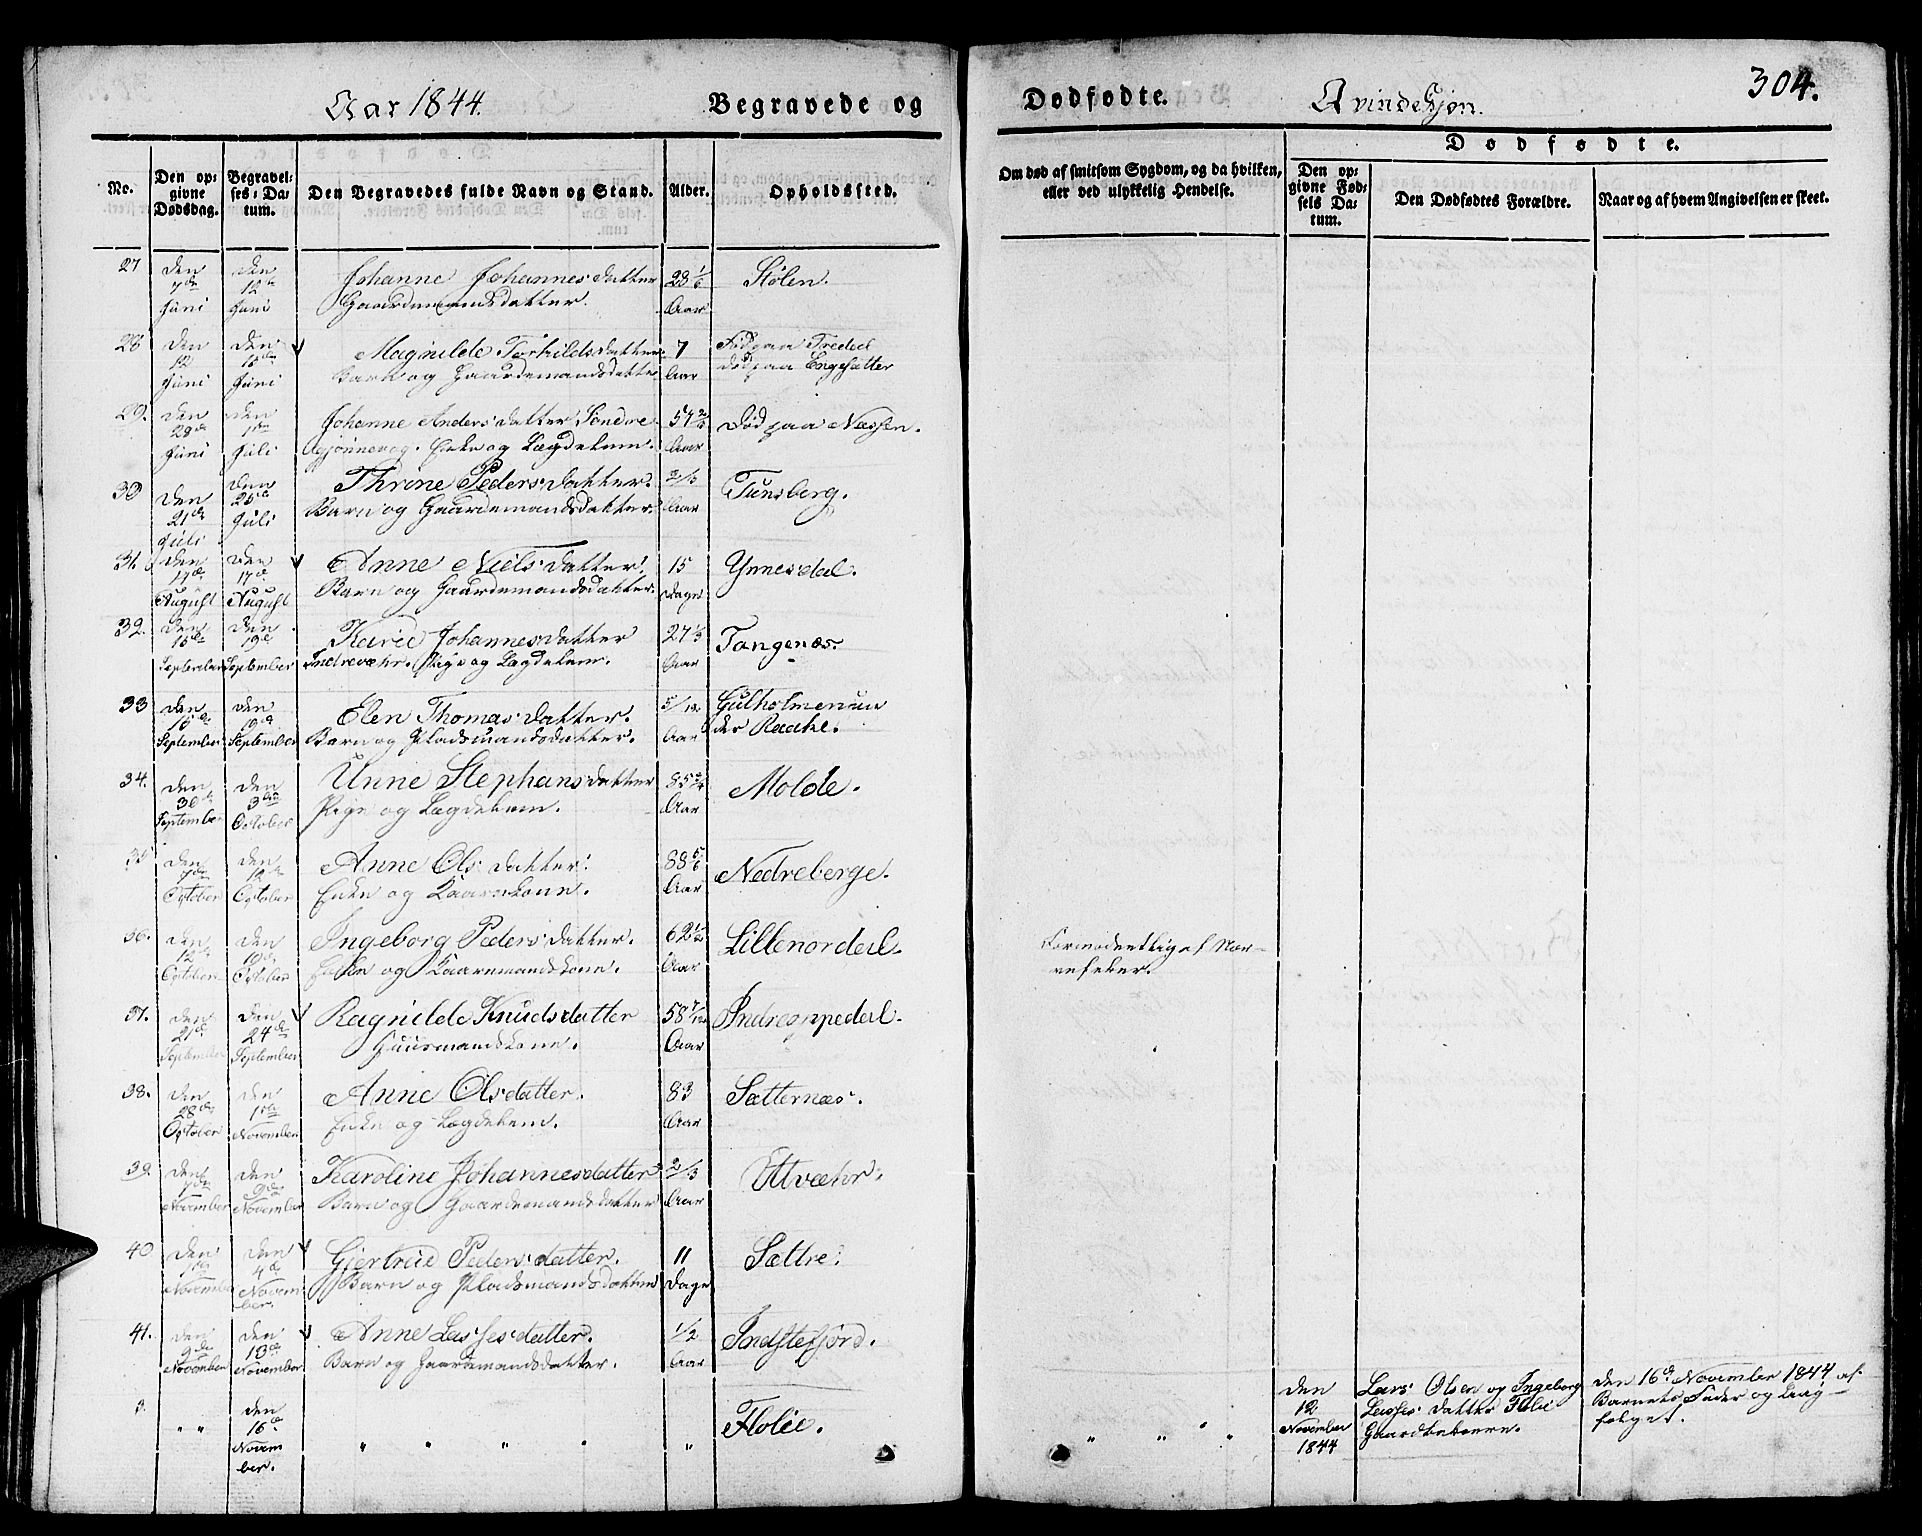 Aar 1844.
Begravede og
Dødfødte.
Qvindekjøn.
304.
No.
Den op-
givne
Dødsdag.
Begravel-
ses-Da-
tum.
Den Begravedes fulde Navn og Stand.
Alder.
Opholdssted.
Om død af smitsom Sygdom, og da hvilken,
eller ved ulykkelig Hendelse.
Dødfødte.
Den op-
givne Fød-
sels Da-
tum.
Den Dødfødtes Forældre.
Naar og af hvem Angivelsen er skeet.
27
den
7de
Juni
den
12te
Juni
Johanne Johannesdatter
Gaardemandsdatter.
28 1/6
Aar
Stølen.
28
den
12
Juni
den
Juni
Magnilde Torkildsdatter
Barn og Gaardemandsdatter
7
Aar
Fød paa Tredal
død paa Engesætter
29.
den
28de
Juni
den
1ste
Juli
Johanne Andersdatter Søndre
Enke og Lægdelem.
57
Aar
Død paa Næssen.
30
den
21de
Juli
den
25de
Juli
Thrine Pedersdatter.
Barn og Gaardemandsdatter
2/3
Aar
Tunsberg.
31.
den
17de
August
den
17de
August
Anne Nielsdatter.
Barn og Gaardemandsdatter.
15
Dage
Ynnesdal.
32.
den
15de
September
den
19de
September
Karie Johannesdatter
Indrevæhr. Pige og Lægdelem.
27 1/3
Aar
Tangenæs.
33
den
15de
September
den
19de
September
Elen Thomasdatter.
Barn og Pladsmandsdatter.
5/12
Aar
Gulholmen un
der Raake.
34.
den
30de
September
den
3die
October
Unne Stephansdatter
Pige og Lægdelem.
85
Aar
Molde.
35
den
7de
October
den
12te
October
Anne Olsdatter.
Enke og Kaarskone.
88 5/6
Aar
Nedreberge.
36.
den
12te
October
den
19de
October
Ingeborg Pedersdatter.
Enke og Kaaremandskone.
62 1/2
Aar
Lillenordal.
Formodentlig af Ner-
vefeber.
37.
den
21de
September
den
24de
September
Ragnilde Knudsdatter
Huusmandskone.
58 7/12
Aar
Indreoppedal.
38.
den
28de
October
den
1ste
November
Anne Olsdatter.
Enke og Lægdelem.
83
Aar
Sætternæs.
39.
den
7de
November
den
9de
November
Karoline Johannesdatter
Barn og Gaardemandsdatter
2/3
Aar
Uttvæhr.
40
den
1ste
November
den
4de
Novem-
ber.
Gjertrud Pedersdatter.
Barn og Pladsmandsdatter
11
Dage
Sættre.
41.
den
9de
November
den
13de
November
Anne Lassesdatter.
Barn og Gaardmandsdatter.
1/2
Aar
Indstefjord.
" "
den
16de
Novem
ber.
" " " " "
Holie.
" " " "
den
12
November
1844
Lars Olsen og Ingeborg
Lassesdatter Holie
Gaardbeboere.
den 16de November 1844 af
Barnets Fader og Liig-
følget.